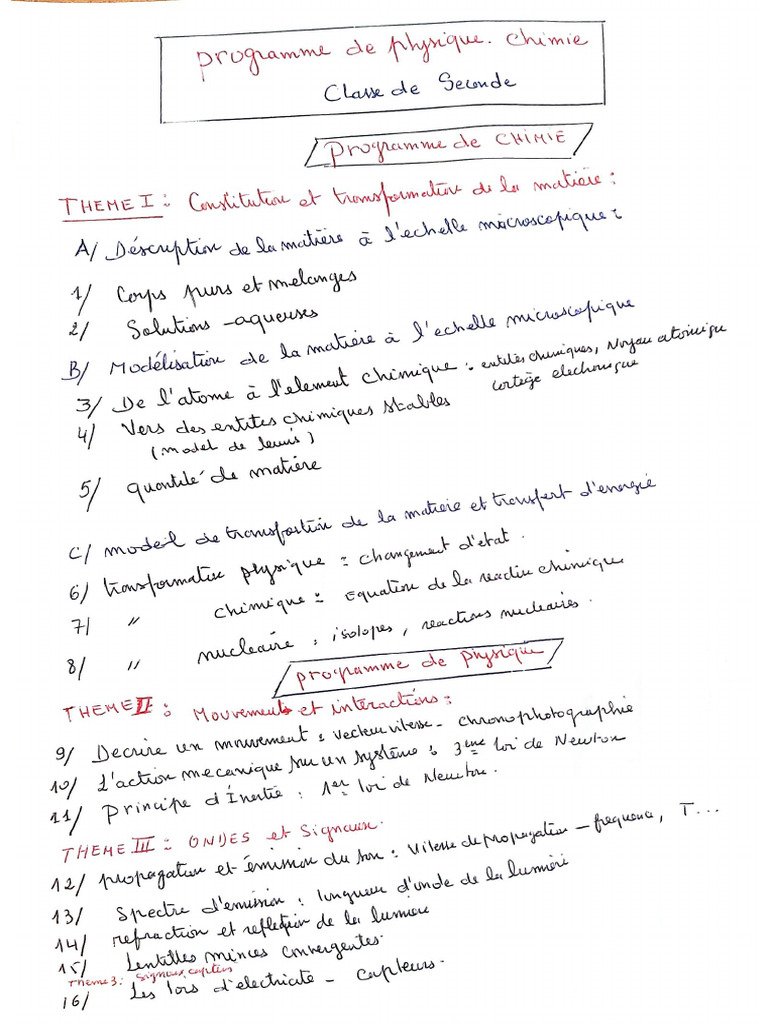 programme de physique. chimie
Classe de Seconde
programme de CHIMIE
THEME I : Constitution et transformation de la matière :
A/ Déscription de la matière à l'echelle macroscopique :
1/ Corps purs et melanges
2/ Solutions - aqueuses
B/ Modélisation de la matière à l'echelle microscopique
3/ De l'atome à l'element chimique : entités chimiques, Noyau atomique
cortège electronique
4/ Vers des entites chimiques stables
(model de lewis)
5/ quantité de matière
C/ modeil de transfortion de la matière et transfert d'energie
6/ transformation physique = changement d'état.
7/ " chimique = Equation de la reaction chimique
8/ " nucleaire : isotopes, reactions nucleaires.
programme de physique
THEME II : Mouvements et interactions :
9/ Decrire un mouvement : vecteur vitesse - chronophotographie
10/ L'action mecanique sur un système : 3eme loi de Newton
11/ Principe d'Inertie : 1er loi de Newton.
THEME III : ONDES et Signaux.
12/ propagation et émission du son : Vitesse de propagation - frequence, T...
13/ Spectre d'emission : longueur d'onde de la lumière
14/ refraction et reflexion de la lumière
15/ Lentilles minces convergentes.
Theme 3 : Signaux, capteurs
16/ Les lois d'electricite - capteurs.